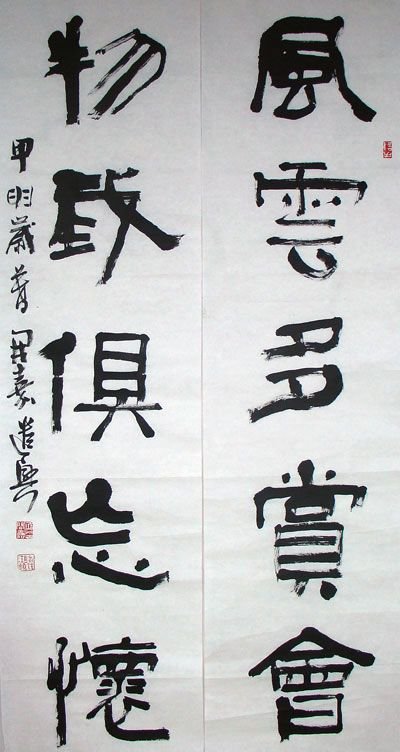 風雲多賞會
物我俱忘懷
甲申歲 遣興